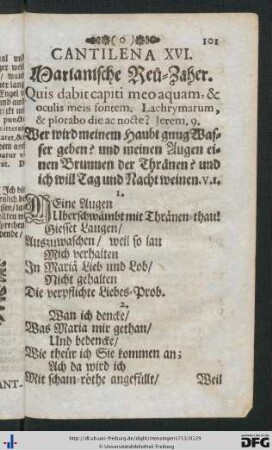 ( o ) 101
CANTILENA XVI.
Marianische Reü-Zäher.
Quis dabit capiti meo aquam, &
oculis meis fontem, Lachrymarum,
& plorabo die ac nocte? Jerem. 9.
Wer wird meinem Haubt gnug Was-
ser geben? und meinen Augen ei-
nen Brunnen der Thränen? und
ich will Tag und Nacht weinen. v. 1.
1.
MEine Augen
Uberschwämbt mit Thränen-thau!
Giesset Laugen/
Auszuwaschen/ weil so lau
Mich verhalten
In Mariä Lieb und Lob/
Nicht gehalten
Die verpflichte Liebes-Prob.
2.
Wan ich dencke/
Was Maria mir gethan/
Und bedencke/
Wie theür ich Sie kommen an;
Ach da wird ich
Mit scham-röthe angefüllt/ Weil
ANT-
http://dl.ub.uni-freiburg.de/diglit/menzinger1711/0129
© Universitätsbibliothek Freiburg
gefördert durch die
DFG